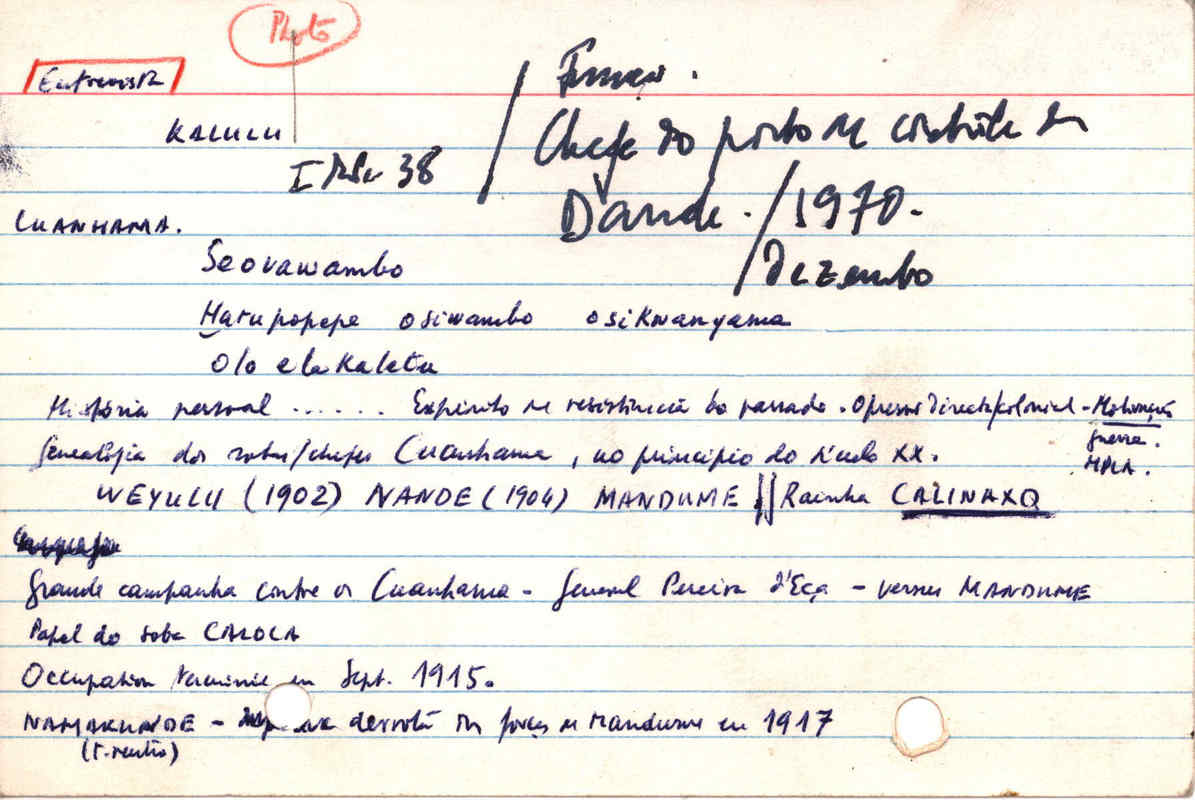 Photo
Entrevista
KALULU
I 38
Chefe do posto de controle de
Dande. / 1970.
Dezembro
CUANHAMA.
Seovawambo
Hatupopepe osiwambo osikwanyama
Olo ela kaletu
História pessoal ...... Espírito de resistência do passado. Opressão directa/colonial - Motivação
guerra.
MPLA.
Genealogia dos sobas/chefes Cuanhama, no princípio do século XX.
WEYULU (1902) NANDE (1904) MANDUME || Rainha CALINAXO
Grande campanha contre os Cuanhama - General Pereira d'Eça - versus MANDUME
Papel do soba CALOLA
Occupation terminée en Sept. 1915.
NAMAKUNDE - derrota das forças de Mandume en 1917